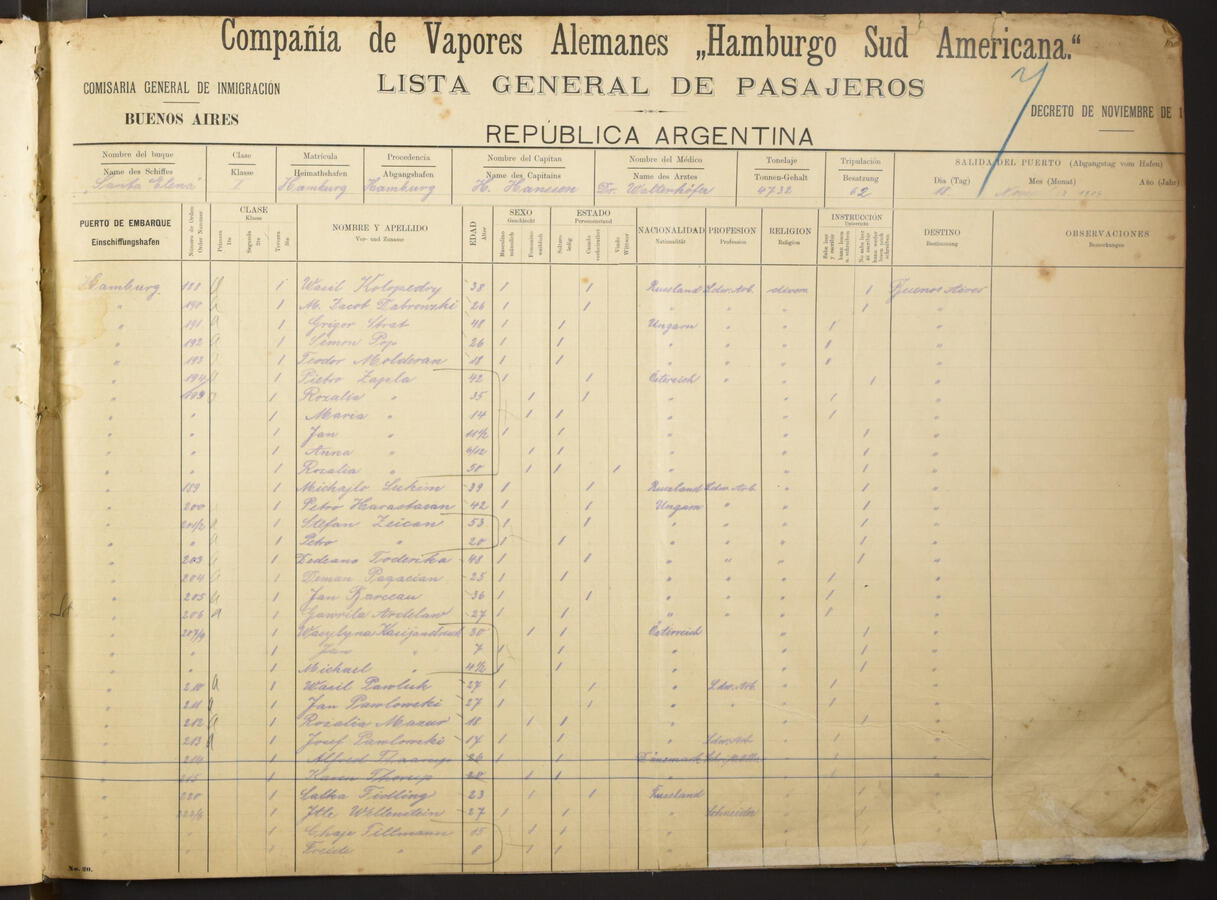 Compañía de Vapores Alemanes „Hamburgo Sud Americana.“
COMISARIA GENERAL DE INMIGRACIÓN
LISTA GENERAL DE PASAJEROS
BUENOS AIRES
DECRETO DE NOVIEMBRE DE 1
REPÚBLICA ARGENTINA
Nombre del buque Clase Matrícula Procedencia Nombre del Capitan Nombre del Médico Tonelaje Tripulación SALIDA DEL PUERTO (Abgangstag vom Hafen)
Name des Schiffes Klasse Heimathshafen Abgangshafen Name des Capitains Name des Arztes Tonnen-Gehalt Besatzung Dia (Tag) Mes (Monat) Año (Jahr)
"Santa Elena" I Hamburg Hamburg H. Hanssen Dr. Walterhöfer 4732 62 18
PUERTO DE EMBARQUE Einschiffungshafen Número de Orden Order Nummer CLASE Klasse Primera Segunda Tercera NOMBRE Y APELLIDO Vor- und Zuname EDAD Alter SEXO Geschlecht Masculino männlich Femenino weiblich ESTADO Personenstand Soltero ledig Casado verheirathet Viudo Wittwer NACIONALIDAD Nationalität PROFESION Profession RELIGION Religion INSTRUCCIÓN DESTINO Bestimmung OBSERVACIONES Bemerkungen
Hamburg 188 1 Wasil Kolopedry 38 1 1 Russland Ldw. Arb. 1 Buenos Aires
" 190 1 M. Jacob Dabrowski 26 1 1 " " " 1 "
" 191 1 Grigor Strat 48 1 1 Ungarn " " 1 "
" 192 1 Simon Pop 26 1 1 " " " 1 "
" 193 1 Teodor Molderan 18 1 1 " " " 1 "
" 194 1 Pietro Zapla 42 1 1 Österreich " " 1 "
" 199 1 Rozalia " 35 1 1 " " 1 "
" " 1 Maria " 14 1 1 " " 1 "
" " 1 Jan " 11 1/2 1 1 " " 1 "
" " 1 Anna " 1 1 " " 1 "
" " 1 Rozalia " 50 1 1 " " 1 "
" 1 Michajlo 39 1 1 Russland Ldw. Arb. " 1 "
" 200 1 Petro Harastasan 42 1 1 Ungarn " " 1 "
" 201/2 1 Stefan Zeican 53 1 1 " " " 1 "
" " 1 Petro " 20 1 1 " " " 1 "
" 203 1 Dedeano Toderika 48 1 1 " " " 1 "
" 204 1 Deman Pagacian 25 1 1 " " " 1 "
" 205 1 Jan 36 1 1 " " " 1 "
" 206 1 Gawrila Ardelaw 27 1 1 " " " 1 "
" 207/9 1 Wasylyna 30 1 1 Österreich " 1 "
" " 1 Jan " 7 1 1 " " 1 "
" " 1 Michael " 4 1/2 1 1 " " 1 "
" 210 1 Wasil Pawluk 27 1 1 " Ldw. Arb. " 1 "
" 211 1 Jan Pawlowski 27 1 1 " " " 1 "
" 212 1 Rozalia Mazur 18 1 1 " " 1 "
" 213 1 Josef Pawlowski 17 1 1 " Ldw. Arb. " 1 "
" 214 1 Alfred Thaarup 26 1 1 Dänemark " 1 "
" 215 1 Karen Thorup 20 1 1 " " 1 "
" 220 1 Catka Fidling 23 1 1 Russland " 1 "
" 1 Itle Wellenstein 27 1 1 " Schneider " 1 "
" " 1 Chaje Tillmann 15 1 1 " " 1 "
" " 1 Freide " 8 1 1 " " 1 "
No. 20.